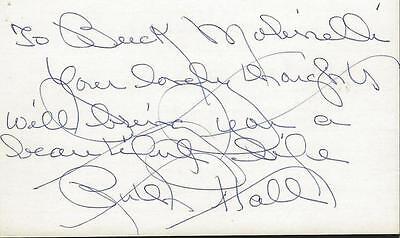 To Buck Molinelli
Your lovely thoughts
will bring you a
beautiful life
Ruth Hall